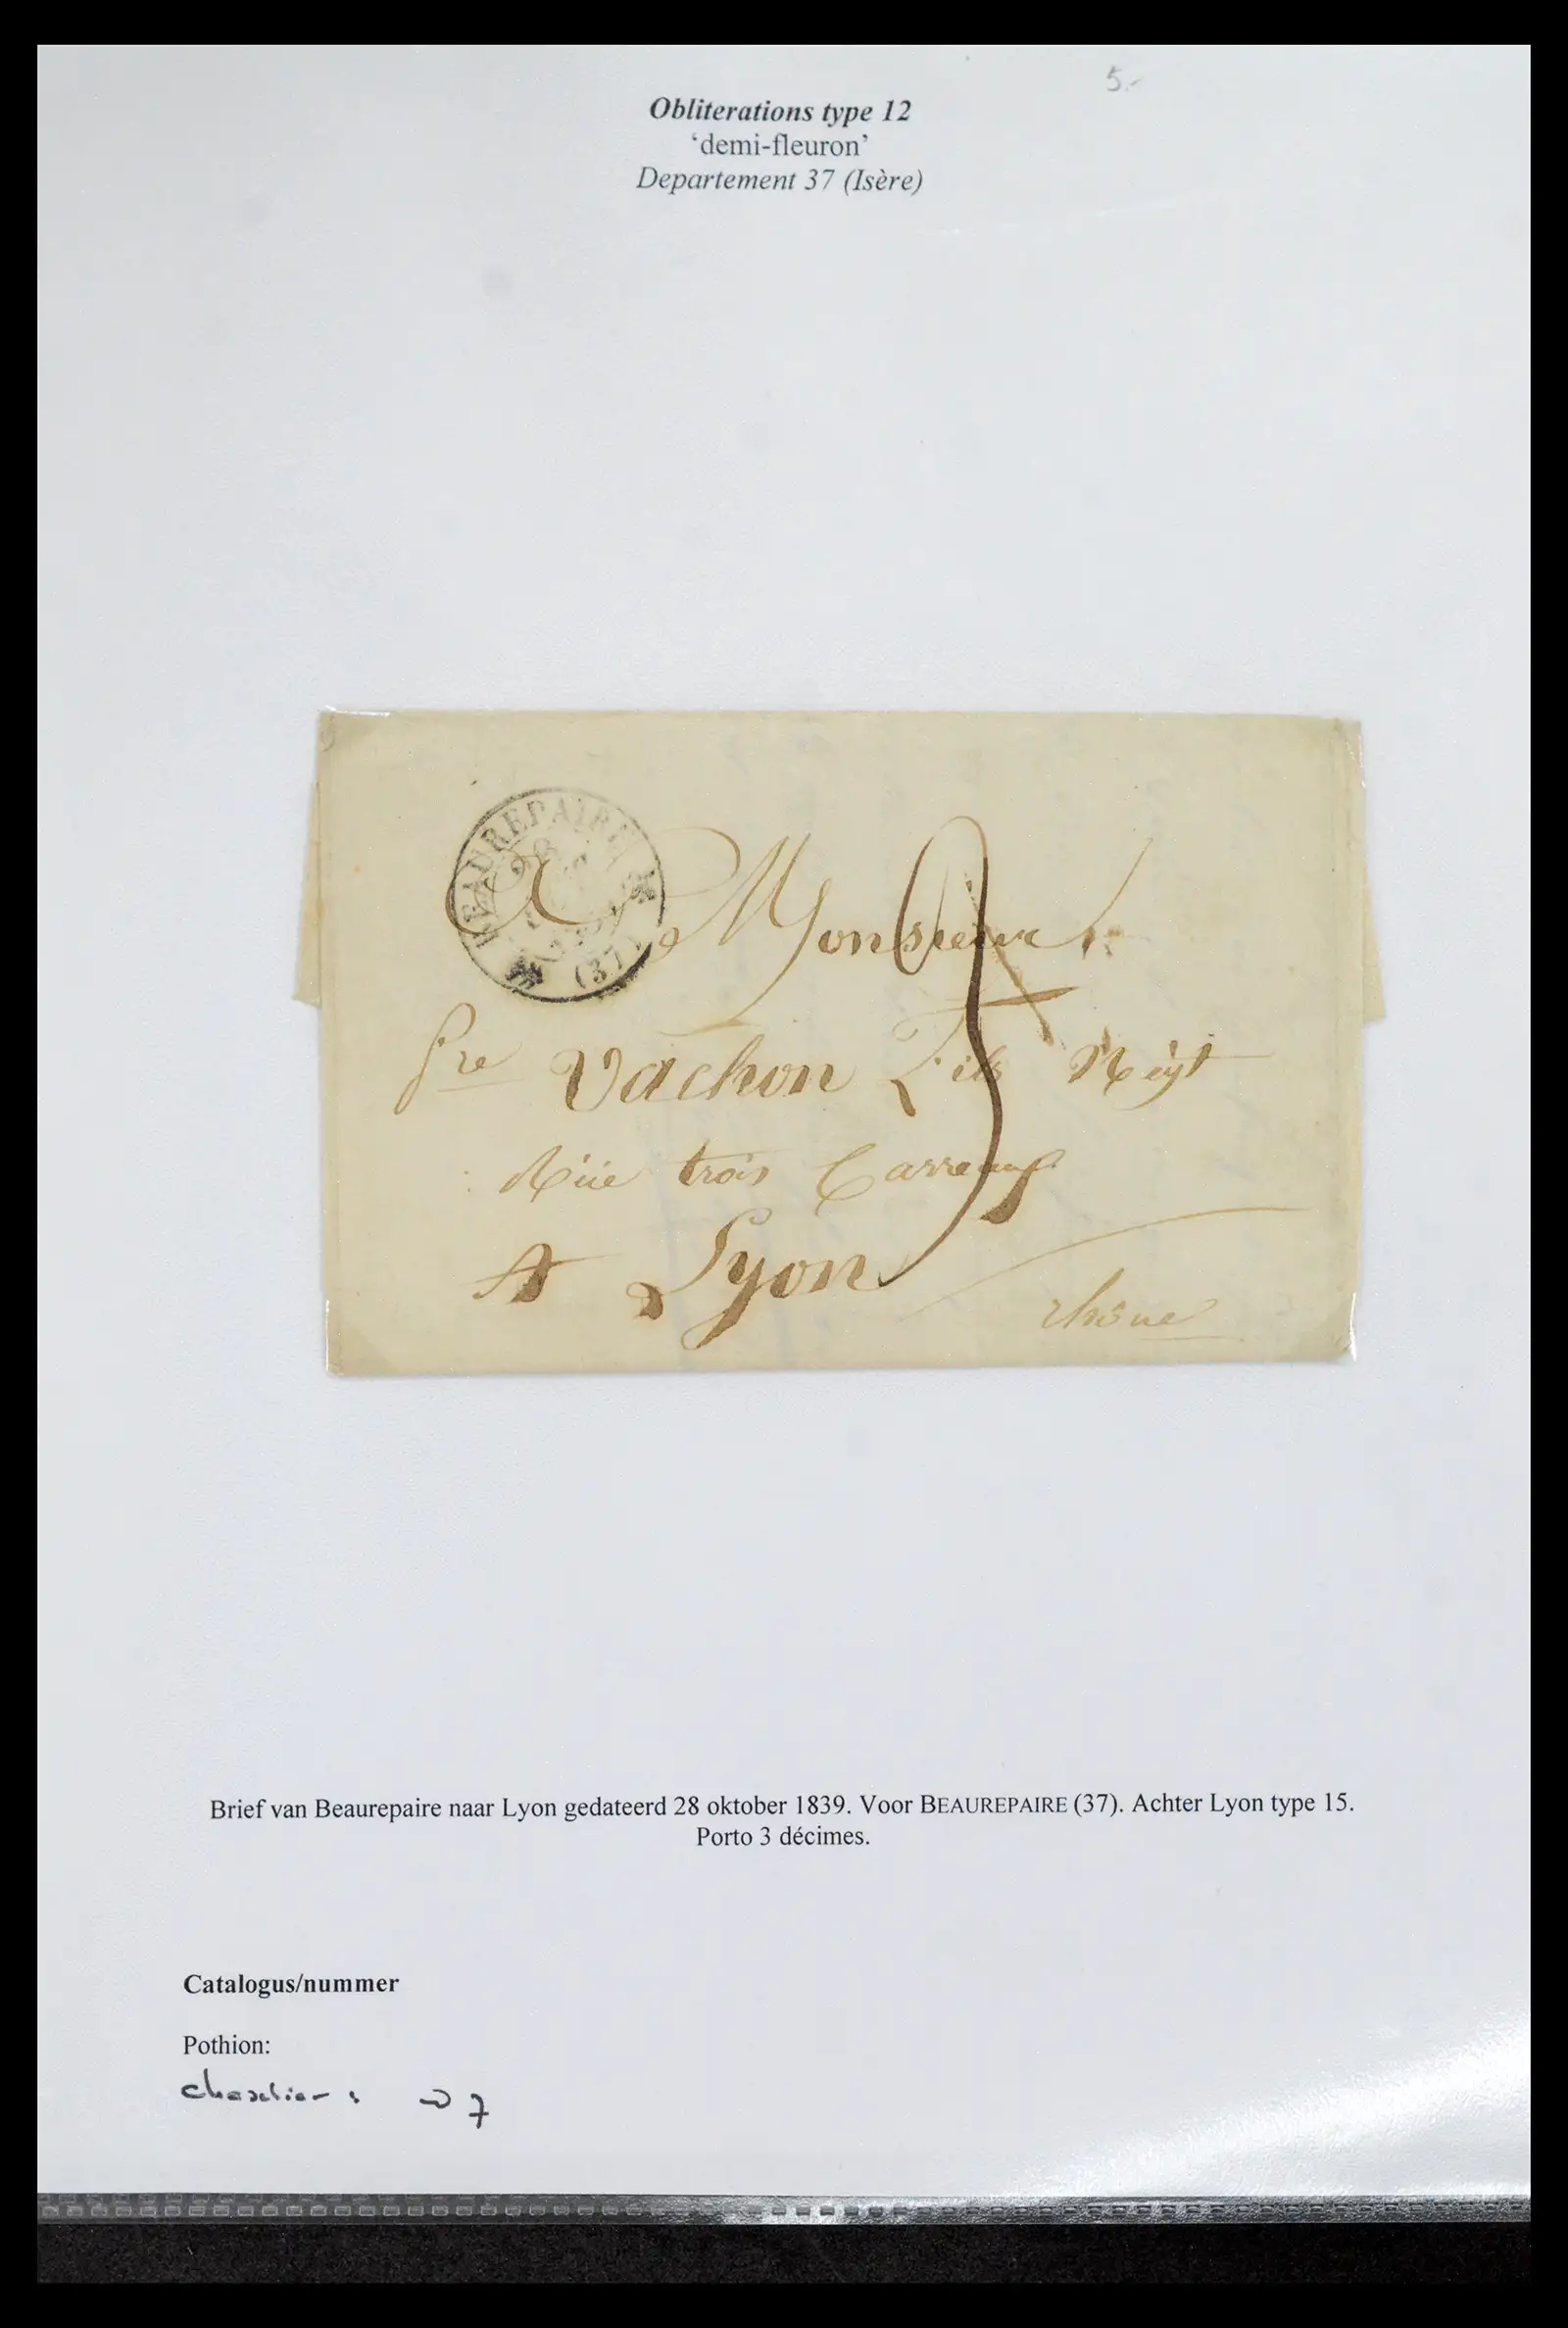 5.-
Obliterations type 12
‘demi-fleuron’
Departement 37 (Isère)
BEAUREPAIRE (37)
A Monsieur
3
pre Vachon Fils Négt
Rüe trois Carreaux
A Lyon
rhône
Brief van Beaurepaire naar Lyon gedateerd 28 oktober 1839. Voor BEAUREPAIRE (37). Achter Lyon type 15.
Porto 3 décimes.
Catalogus/nummer
Pothion:
7